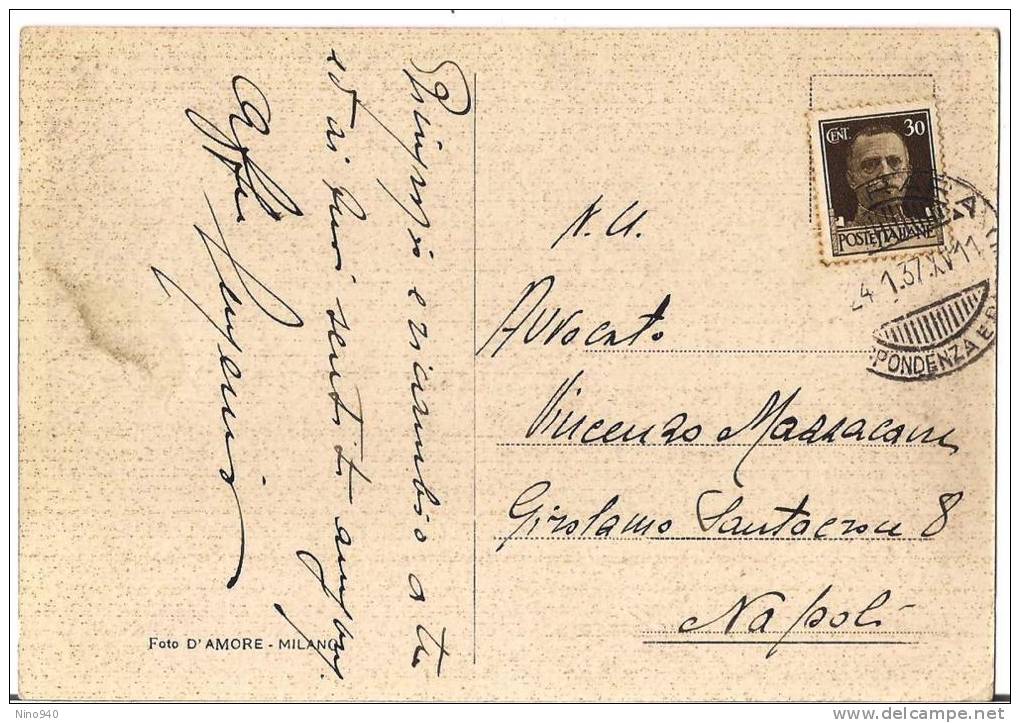 Ringrazio e ricambio a te
ed ai tuoi sentiti auguri.
Aff.mo
N. U.
Avvocato
Vincenzo Mazzacane
Girolamo Santacroce 8
Napoli
CENT. 30
POSTE ITALIANE
24.1.37.XV 11
PONDENZA E P
Foto D'AMORE - MILANO
Nino940
delcampe.net